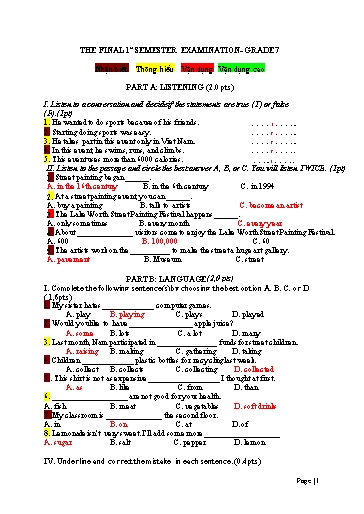 THE FINAL 1st SEMESTER EXAMINATION- GRADE 7
Nhận biết Thông hiểu Vận dụng Vận dụng cao
PART A: LISTENING (2.0 pts)
I. Listen to a conversation and decide if the statements are true (T) or false
(F). (1pt)
1. He wanted to do sports because of his friends.
2. Starting doing sports was easy.
3. He takes part in this event only in Viet Nam.
4. In this event, he swims, runs, and climbs.
5. This event uses more than 6000 calories.
II. Listen to the passage and circle the best answer A, B, or C. You will listen TWICE. (1pt)
1. Street painting began ______.
A. in the 16th century B. in the 6th century C. in 1994
2. At a street painting event you can ______.
A. buy a painting B. talk to artists C. become an artist
3. The Lake Worth Street Painting Festival happens ______.
A. only sometimes B. every month C. every year
4. About ______ visitors come to enjoy the Lake Worth Street Painting Festival.
A. 600 B. 100,000 C. 60
5. The artists work on the ______ to make the street a huge art gallery.
A. pavement B. Museum C. street
PART B: LANGUAGE (2,0 pts)
I. Complete the following sentence(s) by choosing the best option A, B, C, or D
(1,6pts)
1. My sister hates ______ computer games.
A. play B. playing C. plays D. played
2. Would you like to have ______ apple juice?
A. some B. lots C. a lot D. many
3. Last month, Nam participated in ______ funds for street children.
A. raising B. making C. gathering D. taking
4. Children ______ plastic bottles for recycling last week.
A. collect B. collects C. collecting D. collected
5. This shirt is not as expensive ______ I thought at first.
A. as B. like C. from D. than
6. ______ are not good for your health.
A. fish B. meat C. vegetables D. soft drinks
7. My classroom is ______ the second floor.
A. in B. on C. at D. of
8. Lemonade isn't very sweet. I'll add some more ______
A. sugar B. salt C. pepper D. lemon
IV. Underline and correct the mistake in each sentence. (0.4pts)
Page | 1